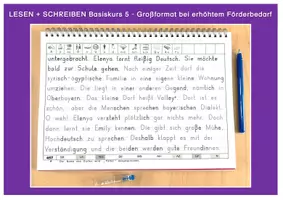 LESEN + SCHREIBEN Basiskurs 5 - Großformat bei erhöhtem Förderbedarf
untergebracht. Elenya lernt fleißig Deutsch. Sie möchte
bald zur Schule gehen. Nach einiger Zeit darf die
syrisch-ägyptische Familie in eine eigene kleine Wohnung
umziehen. Die liegt in einer anderen Gegend, nämlich in
Oberbayern. Das kleine Dorf heißt Valley. Dort ist es
schön, aber die Menschen sprechen bayerischen Dialekt.
O weh! Elenya versteht plötzlich gar nichts mehr. Doch
dann lernt sie Emily kennen. Die gibt sich große Mühe,
Hochdeutsch zu sprechen. Deshalb klappt es mit der
Verständigung und die beiden werden gute Freundinnen.